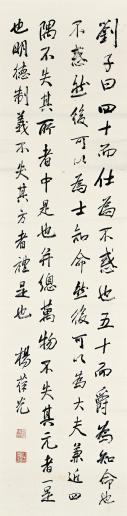 劉子曰四十而仕為不惑也五十而爵為知命也
不惑然後可以為士知命然後可以為大夫兼近四
隅不失其所者中是也并總萬物不失其元者一是
也明德制義不失其方者禮是也 楊葆光